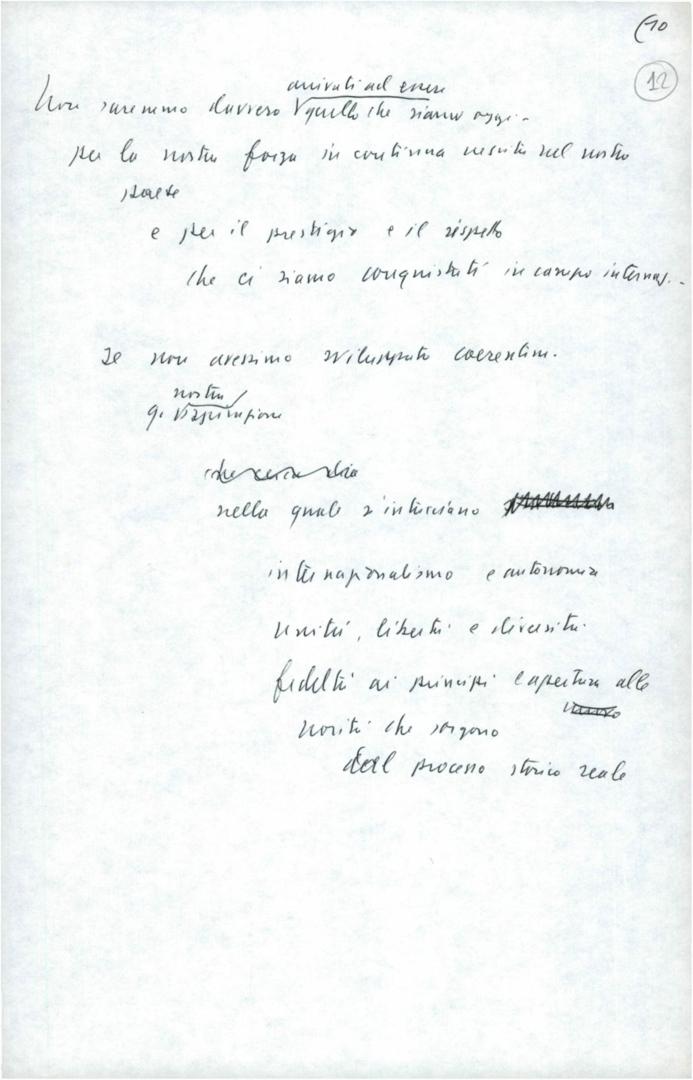 (10
12
arrivati ad essere
Non saremmo davvero quello che siamo oggi -
per la nostra forza in continua crescita nel nostro
paese
e per il prestigio e il rispetto
che ci siamo conquistati in campo internaz. -
Se non avessimo sviluppato coerentem.
nostra
q. ispirazione
nella quale s'intrecciano
internazionalismo e autonomia
unità, libertà e diversità.
fedeltà ai principi e apertura alle
novità che sorgono
dal processo storico reale